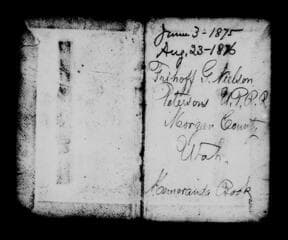 June 3-1875
Aug. 23-1876
Frihoff G. Nielson
Petersons U.P.R.R.
Morgan County
Utah.
Memoranda Book